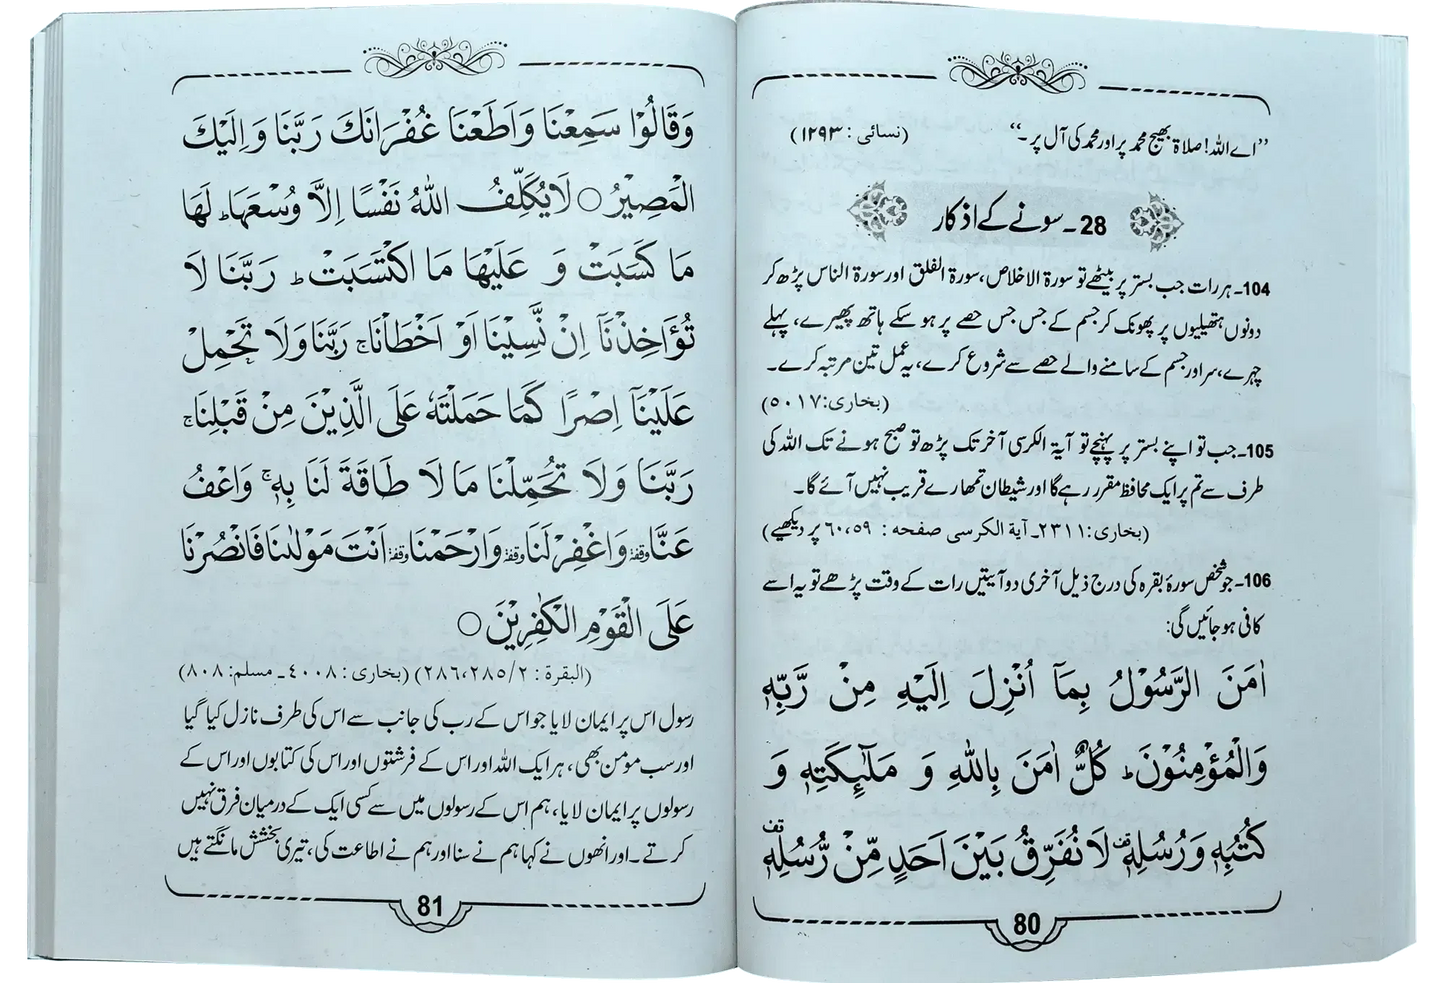 ”اے اللہ! صلاۃ بھیج محمد پر اور محمد کی آل پر۔“ (نسائی : ۱۲۹۳)
28۔ سونے کے اذکار
104۔ ہر رات جب بستر پر بیٹھے تو سورۃ الاخلاص، سورۃ الفلق اور سورۃ الناس پڑھ کر
دونوں ہتھیلیوں پر پھونک کر جسم کے جس جس حصے پر ہو سکے ہاتھ پھیرے، پہلے
چہرے، سر اور جسم کے سامنے والے حصے سے شروع کرے، یہ عمل تین مرتبہ کرے۔
(بخاری: ۵۰۱۷)
105۔ جب تو اپنے بستر پر پہنچے تو آیۃ الکرسی آخر تک پڑھ تو صبح ہونے تک اللہ کی
طرف سے تم پر ایک محافظ مقرر رہے گا اور شیطان تمھارے قریب نہیں آئے گا۔
(بخاری: ۲۳۱۱۔ آیة الکرسی صفحه : ۶۰،۵۹ پر دیکھیے)
106۔ جو شخص سورۂ بقرہ کی درج ذیل آخری دو آیتیں رات کے وقت پڑھے تو یہ اسے
کافی ہو جائیں گی:
اٰمَنَ الرَّسُوْلُ بِمَآ اُنْزِلَ اِلَيْهِ مِنْ رَّبِّهٖ
وَالْمُؤْمِنُوْنَ ؕ كُلٌّ اٰمَنَ بِاللّٰهِ وَ مَلٰٓىِٕكَتِهٖ وَ
كُتُبِهٖ وَرُسُلِهٖ ۫ لَا نُفَرِّقُ بَيْنَ اَحَدٍ مِّنْ رُّسُلِهٖ ۫
80
وَقَالُوْا سَمِعْنَا وَاَطَعْنَا غُفْرَانَكَ رَبَّنَا وَاِلَيْكَ
الْمَصِيْرُ ○ لَا يُكَلِّفُ اللّٰهُ نَفْسًا اِلَّا وُسْعَهَا ؕ لَهَا
مَا كَسَبَتْ وَ عَلَيْهَا مَا اكْتَسَبَتْ ؕ رَبَّنَا لَا
تُؤَاخِذْنَآ اِنْ نَّسِيْنَا اَوْ اَخْطَاْنَا ۚ رَبَّنَا وَلَا تَحْمِلْ
عَلَيْنَآ اِصْرًا كَمَا حَمَلْتَهٗ عَلَى الَّذِيْنَ مِنْ قَبْلِنَا ۚ
رَبَّنَا وَلَا تُحَمِّلْنَا مَا لَا طَاقَةَ لَنَا بِهٖ ۚ وَاعْفُ
عَنَّا وقفة وَاغْفِرْ لَنَا وقفة وَارْحَمْنَا وقفة اَنْتَ مَوْلٰىنَا فَانْصُرْنَا
عَلَى الْقَوْمِ الْكٰفِرِيْنَ ○
(البقرة : ۲۸۶،۲۸۵/۲) (بخاری : ۴۰۰۸ ۔ مسلم: ۸۰۸)
رسول اس پر ایمان لایا جو اس کے رب کی جانب سے اس کی طرف نازل کیا گیا
اور سب مومن بھی، ہر ایک اللہ اور اس کے فرشتوں اور اس کی کتابوں اور اس کے
رسولوں پر ایمان لایا، ہم اس کے رسولوں میں سے کسی ایک کے درمیان فرق نہیں
کرتے۔ اور انھوں نے کہا ہم نے سنا اور ہم نے اطاعت کی، تیری بخشش مانگتے ہیں
81